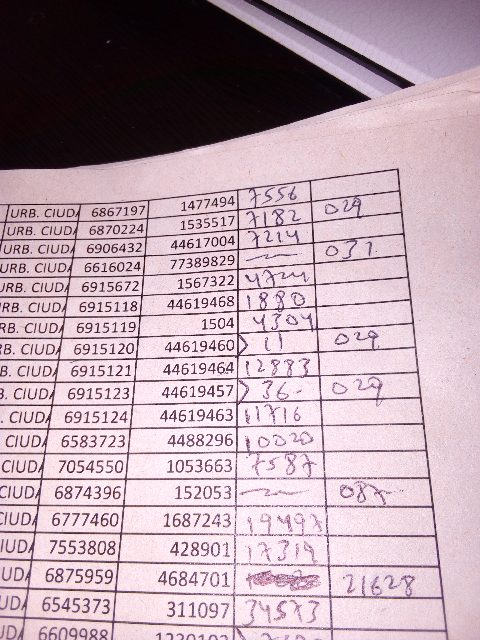 URB. CIUDA 6867197 1477494 7556
URB. CIUDA 6870224 1535517 7182 029
URB. CIUDA 6906432 44617004 7214
URB. CIUDA 6616024 77389829 031
URB. CIUDA 6915672 1567322 4724
URB. CIUDA 6915118 44619468 1880
URB. CIUDA 6915119 1504 4304
RB. CIUDA 6915120 44619460 11 029
B. CIUDA 6915121 44619464 12883
B. CIUDA 6915123 44619457 36- 029
. CIUDA 6915124 44619463 11716
CIUDA 6583723 4488296 10020
CIUDA 7054550 1053663 7587
CIUDA 6874396 152053 087
CIUDA 6777460 1687243 19497
IUDA 7553808 428901 17319
UDA 6875959 4684701 21628
UD 6545373 311097 34573
UD 6609988